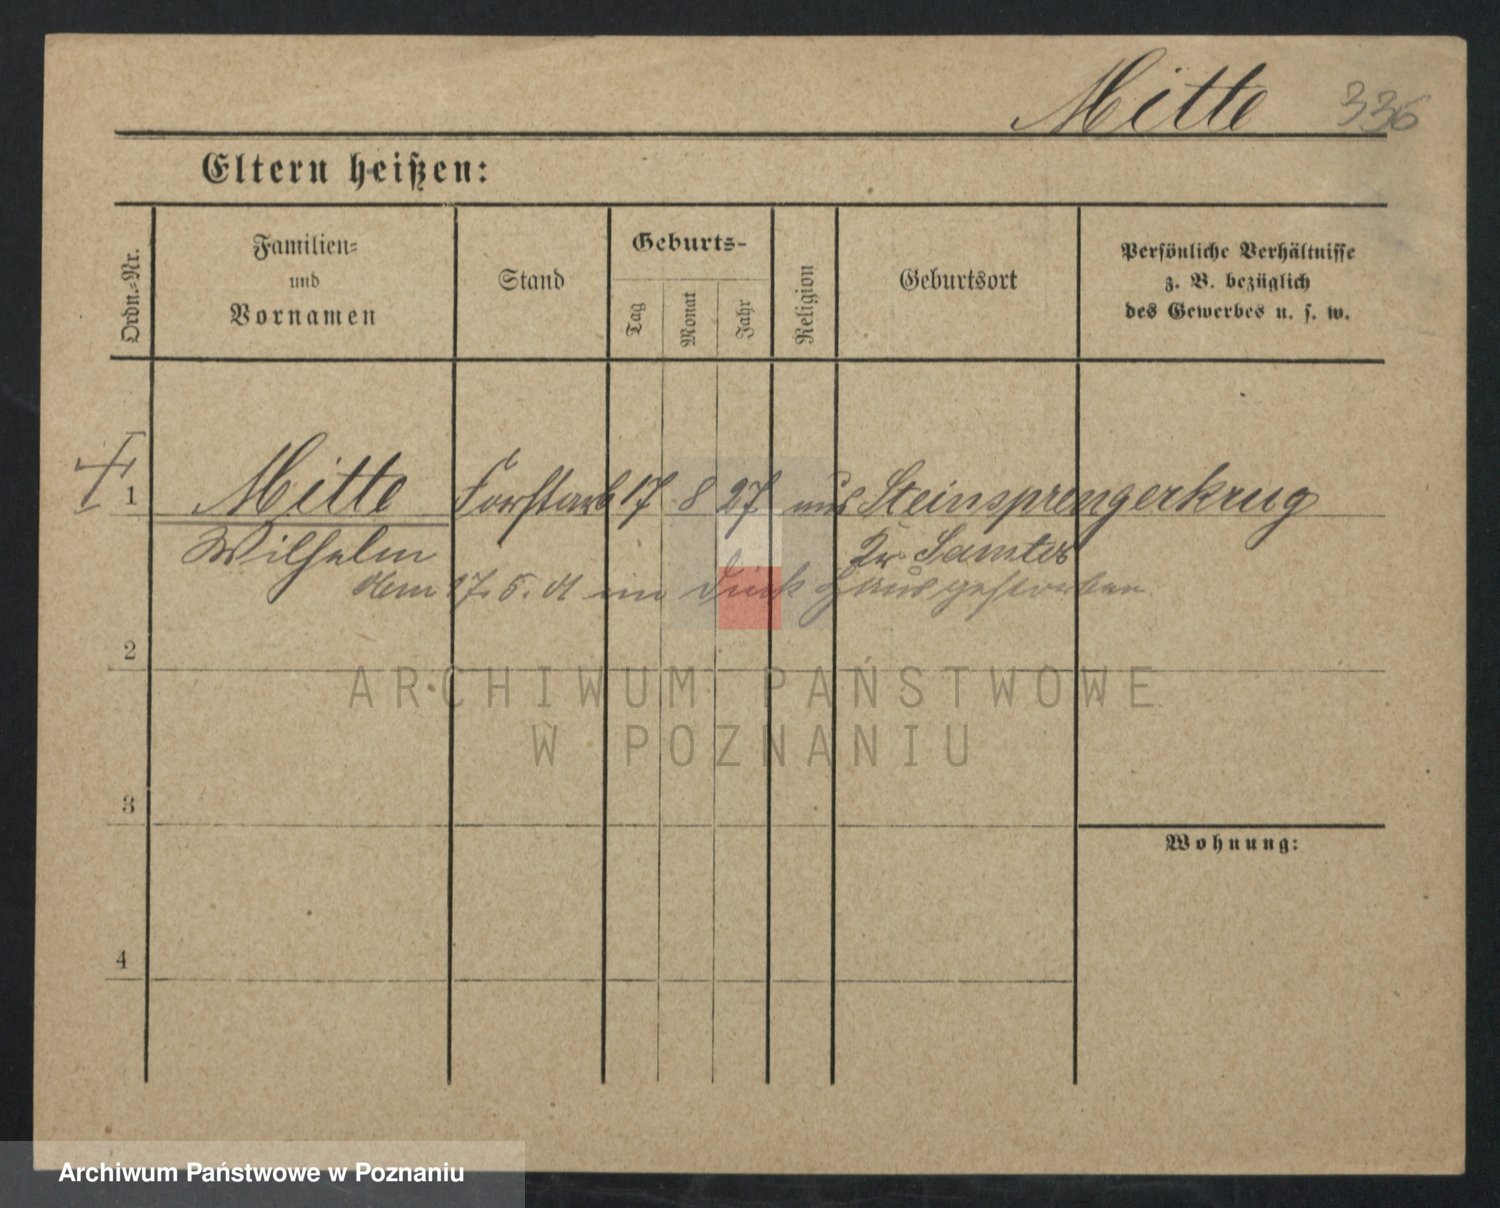 Mitte 336
Eltern heißen:
Ordn.=Nr.
Familien=
und
Vornamen
Stand
Geburts-
Tag
Monat
Jahr
Religion
Geburtsort
Persönliche Verhältnisse
z. B. bezüglich
des Gewerbes u. s. w.
1 Mitte Forstarb 17 8 27 Steinsprengerkrug
Wilhelm Kr. Samter
17. 5. im Haus gestorben
2
ARCHIWUM PAŃSTWOWE
W POZNANIU
3
Wohnung:
4
Archiwum Państwowe w Poznaniu